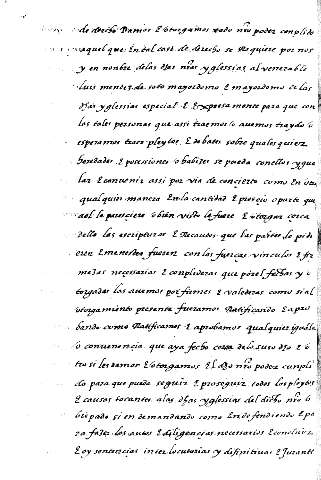 de derecho Damos E otorgamos todo nro poder cumplido
aquel que En tal caso de derecho se Requiere por nos
y en nonbre de las dhas nras yglessias al venerable
luis mendez de soto mayordomo E mayordomo de las
dhas yglessias especial E Expresamente para que con
los tales personas que assi traemos o avemos traydo o
esperamos traer pleytos E debates sobre qualesquier
heredades E posesiones o habides se pueda conellos ygua
lar E convenir assi por via de concierto como En otra
qualquier manera En la cantidad E precio o parte que
a el le paresciere o bien visto le fuere E otorgar cerca
dello las escripturas E Recaudos que las partes le pidi
eren E menester fueren con las fuerças vinculos E fir
mezas necesarias E conplideras que por el fechas y o
torgadas las avemos por firmes E valederas como si al
otorgamiento presente fuesemos Ratificando E apro
bando como Ratificamos E aprobamos qualquier iguala
o convenencia que aya fecho cerca de lo suso dho E o
tro si le damos E otorgamos El dho nro poder cumpli
do para que pueda seguir E proseguir todos los pleytos
E causas tocantes a las dhas yglessias del dicho nro o
bispado si en demandando como En defendiendo E pa
ra fazer los autos E diligencias necesarios E concluir
E oyr sentencias interlocutorias y difinitivas E Jurante